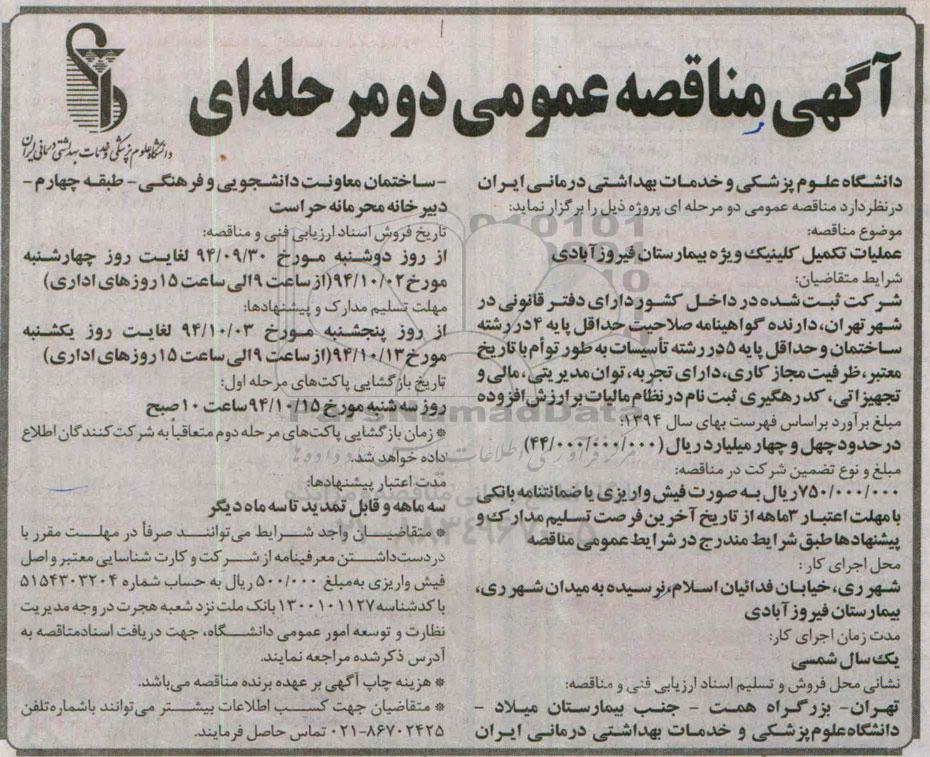 آگهی مناقصه عمومی دو مرحله‌ای
دانشگاه علوم پزشکی و خدمات بهداشتی درمانی ایران
دانشگاه علـوم پزشـکی و خدمـات بهداشتی درمانـی ایـران
درنظر دارد مناقصه عمومی دو مرحله ای پروژه ذیل را برگزار نماید:
موضوع مناقصه:
عملیات تکمیل کلینیک ویژه بیمارستان فیروزآبادی
شرایط متقاضیان:
شـرکت ثبـت شـده در داخـل کشـور دارای دفتـر قانونـی در
شهر تهران، دارنده گواهینامه صلاحیت حداقل پایه ۴ در رشته
ساختمان و حداقل پایه ۵ در رشته تأسیسات به طور توأم با تاریخ
معتبر، ظرفیت مجاز کاری، دارای تجربه، توان مدیریتی، مالی و
تجهیزاتی، کد رهگیری ثبت نام در نظام مالیات بر ارزش افزوده
مبلغ برآورد براساس فهرست بهای سال ۱۳۹۴:
در حدود چهل و چهار میلیارد ریال (۴۴/۰۰۰/۰۰۰/۰۰۰)
مبلغ و نوع تضمین شرکت در مناقصه:
۷۵۰/۰۰۰/۰۰۰ ریال بـه صـورت فیش واریزی یا ضمانتنامه بانکی
با مهلت اعتبـار ۳ماهه از تاریخ آخرین فرصت تسـلیم مدارک و
پیشنهادها طبق شرایط مندرج در شرایط عمومی مناقصه
محل اجرای کار:
شهر ری، خیابان فدائیان اسلام، نرسیده به میدان شهر ری،
بیمارستان فیروزآبادی
مدت زمان اجرای کار:
یک سال شمسی
نشانی محل فروش و تسلیم اسناد ارزیابی فنی و مناقصه:
تهران- بزرگـراه همـت - جنـب بیمارسـتان میـلاد -
دانشگاه علوم پزشکی و خدمـات بهداشـتی درمانـی ایـران
-سـاختمان معاونـت دانشـجویی و فرهنگـی- طبقـه چهارم-
دبیرخانه محرمانه حراست
تاریخ فروش اسناد ارزیابی فنی و مناقصه:
از روز دوشنبه مـورخ ۹۴/۰۹/۳۰ لغایـت روز چهارشـنبه
مورخ ۹۴/۱۰/۰۲ (از ساعت ۹ الی ساعت ۱۵ روزهای اداری)
مهلت تسلیم مدارک و پیشنهادها:
از روز پنجشنبه مـورخ ۹۴/۱۰/۰۳ لغایت روز یکشنبه
مورخ ۹۴/۱۰/۱۳ (از ساعت ۹ الی ساعت ۱۵ روزهای اداری)
تاریخ بازگشایی پاکت‌های مرحله اول:
روز سه شنبه مورخ ۹۴/۱۰/۱۵ ساعت ۱۰ صبح
* زمان بازگشایی پاکت‌های مرحله دوم متعاقباً به شرکت‌کنندگان اطلاع
داده خواهد شد.
مدت اعتبار پیشنهادها:
سه ماهه و قابل تمدید تا سه ماه دیگر
* متقاضیـان واجد شـرایط می‌تواننـد صرفاً در مهلـت مقرر با
در دست داشـتن معرفینامه از شـرکت و کارت شناسایی معتبر و اصل
فیش واریزی به مبلغ ۵۰۰/۰۰۰ ریال به حساب شماره ۵۱۵۴۳۰۳۲۰۴
با کد شناسه ۱۳۰۰۱۰۱۱۲۷ بانک ملت نزد شعبه هجرت در وجه مدیریت
نظارت و توسعه امور عمومی دانشـگاه، جهت دریافت اسناد مناقصه به
آدرس ذکر شده مراجعه نمایند.
* هزینه چاپ آگهی بر عهده برنده مناقصه می‌باشد.
* متقاضیان جهت کسـب اطلاعات بیشـتر می‌توانند با شماره تلفن
۰۲۱-۸۶۷۰۲۴۲۵ تماس حاصل فرمایند.